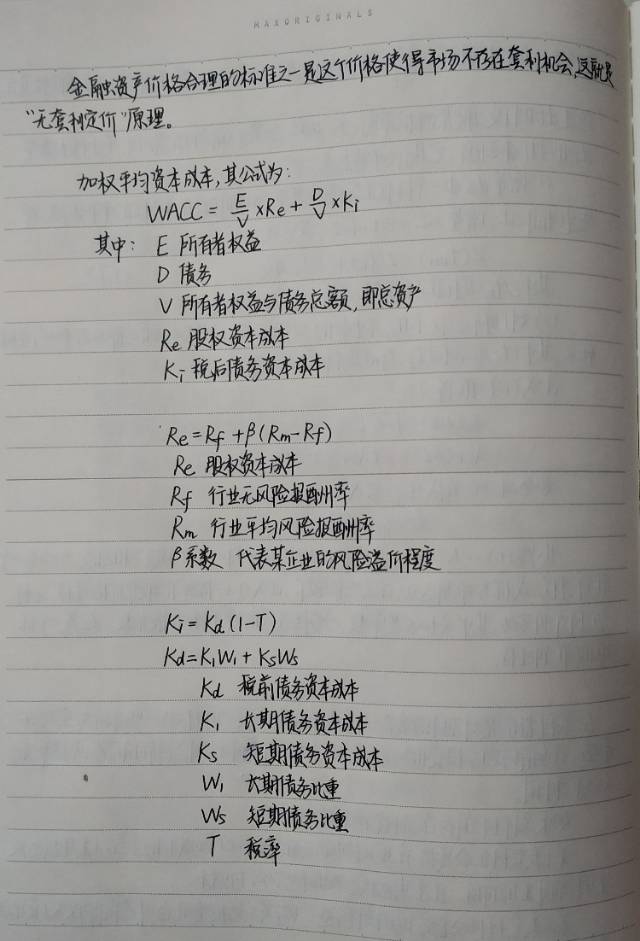 MAXORIGINALS
金融资产价格合理的标准之一是这个价格使得市场不存在套利机会,这就是
“无套利定价”原理。
加权平均资本成本,其公式为:
WACC = E/V ×Re + D/V ×Ki
其中: E 所有者权益
D 债务
V 所有者权益与债务总额,即总资产
Re 股权资本成本
Ki 税后债务资本成本
Re=Rf+β(Rm-Rf)
Re 股权资本成本
Rf 行业无风险报酬率
Rm 行业平均风险报酬率
β系数 代表某企业的风险溢价程度
Ki=Kd(1-T)
Kd=K1W1+KsWs
Kd 税前债务资本成本
K1 长期债务资本成本
Ks 短期债务资本成本
W1 长期债务比重
Ws 短期债务比重
T 税率